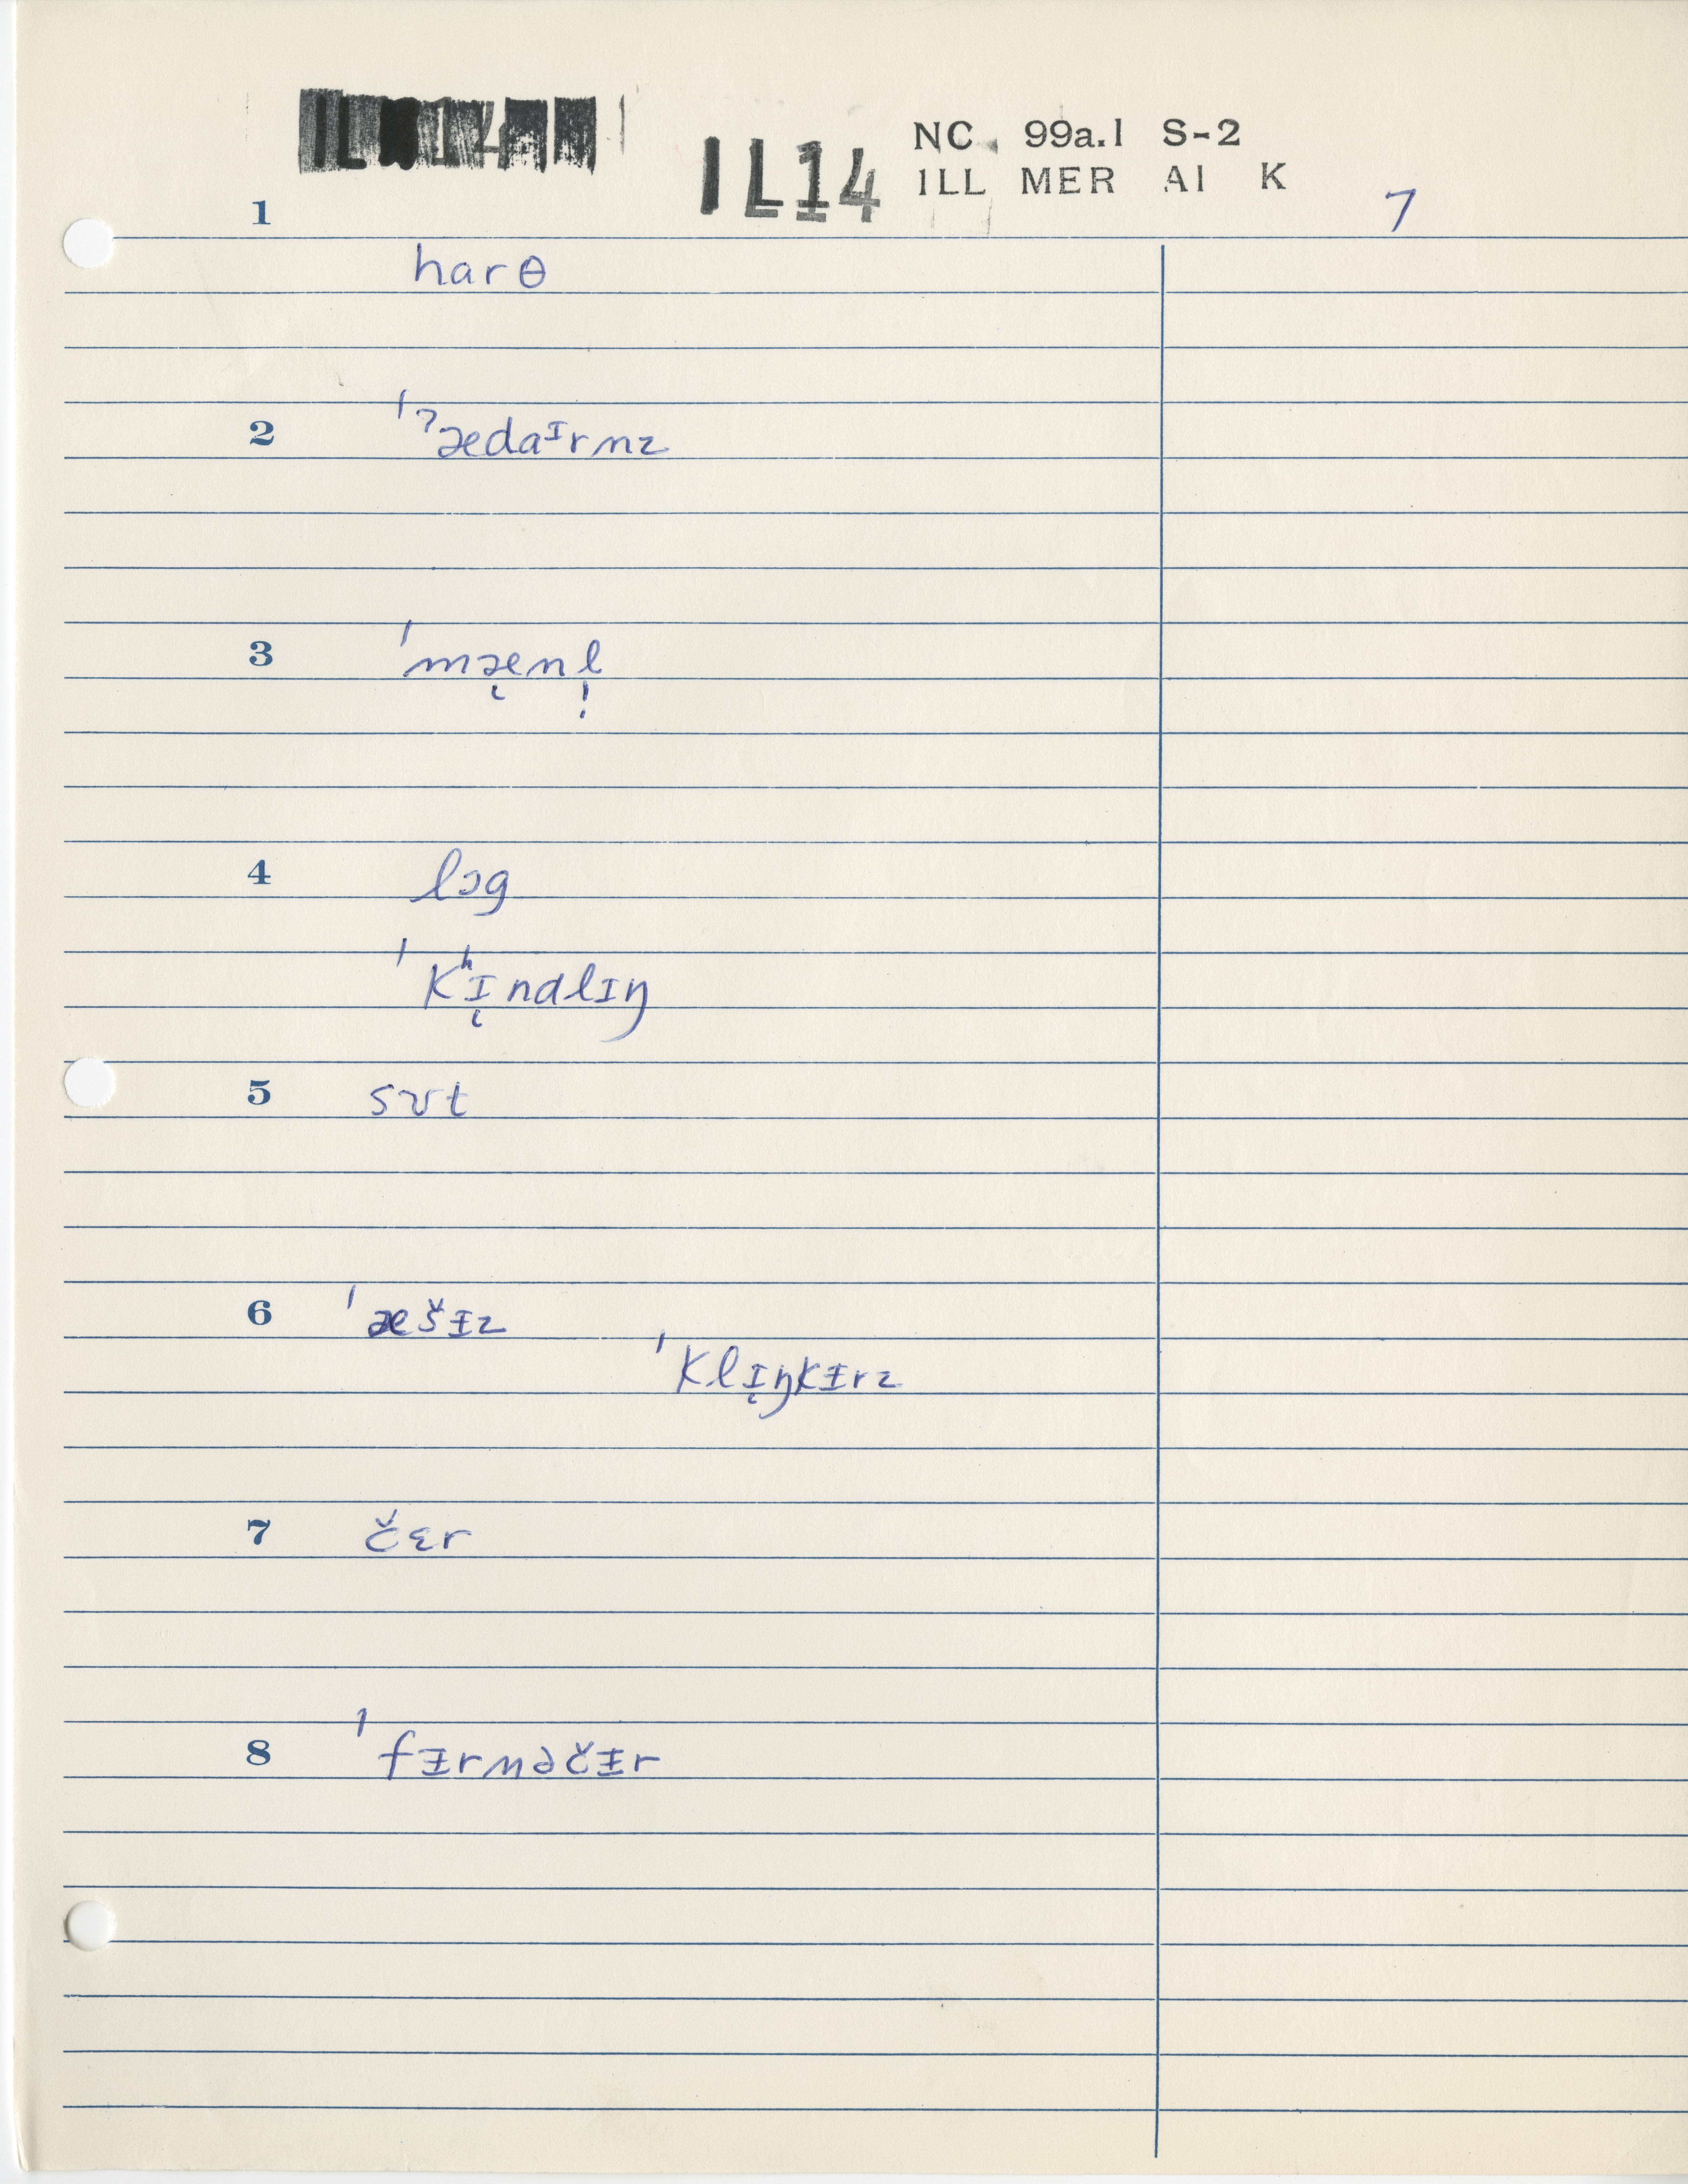 IL14
NC. 99a.1 S-2
ILL MER A1 K
7
1
harθ
2 ˈˀædaᶦrnz
3 ˈmæ̨nl̩
4 lɔg
ˈkʰɪ̨ndlɪŋ
5 sʊt
6 ˈæšɨz
ˈklɪ̨ŋkɨrz
7 čɛr
8 ˈfɨrnəčɨr